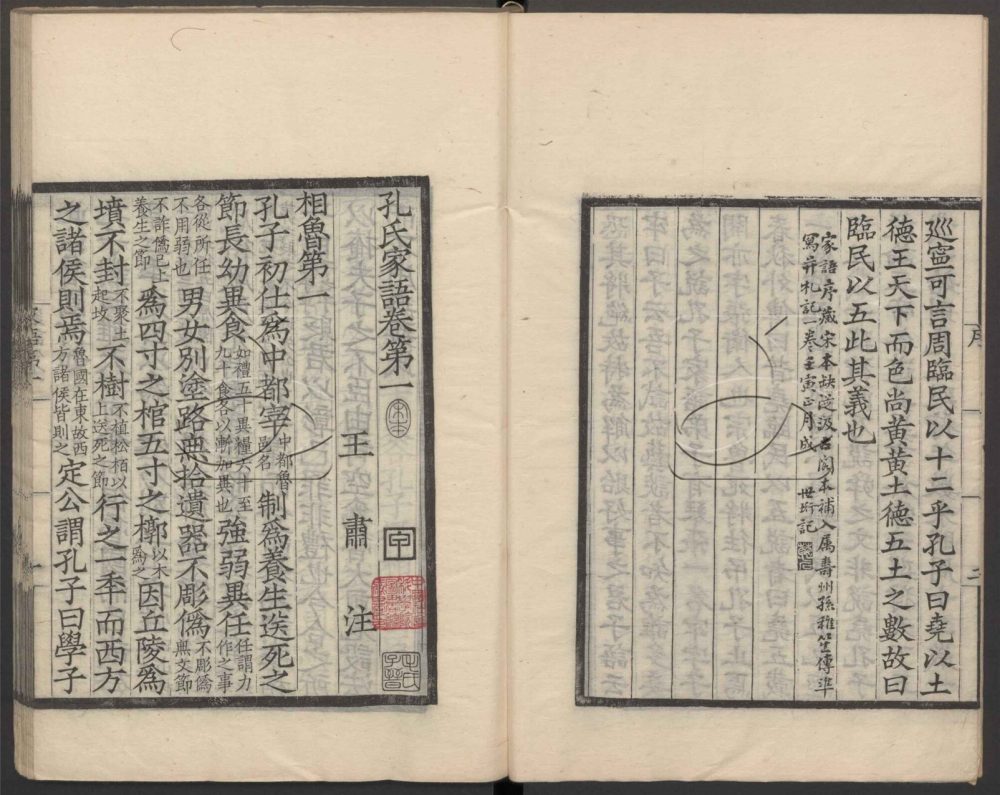 廵寧可言周臨民以十二乎孔子曰堯以土
德王天下而色尚黃黃土德五土之數故曰
臨民以五此其義也
家語序藏宋本缺逆汲古閣本補入属壽州孫雅竺傳準
寫并札記一卷壬寅正月成 世珩記
序
二
孔氏家語卷第一
王肅注
相魯第一
孔子初仕爲中都宰中都魯邑名制爲養生送死之
節長幼異食如禮五十異糧六十至九十食各以漸加異也強弱異任任謂力作之事
各從所任不用弱也男女別塗路無拾遺器不彫僞不彫僞無文節
不詐僞已上養生之節爲四寸之棺五寸之槨以木爲之因丘陵爲
墳不封不聚土起坟不樹不植松栢以上送死之節行之一年而西方
之諸侯則焉魯國在東故西方諸侯皆則之定公謂孔子曰學子